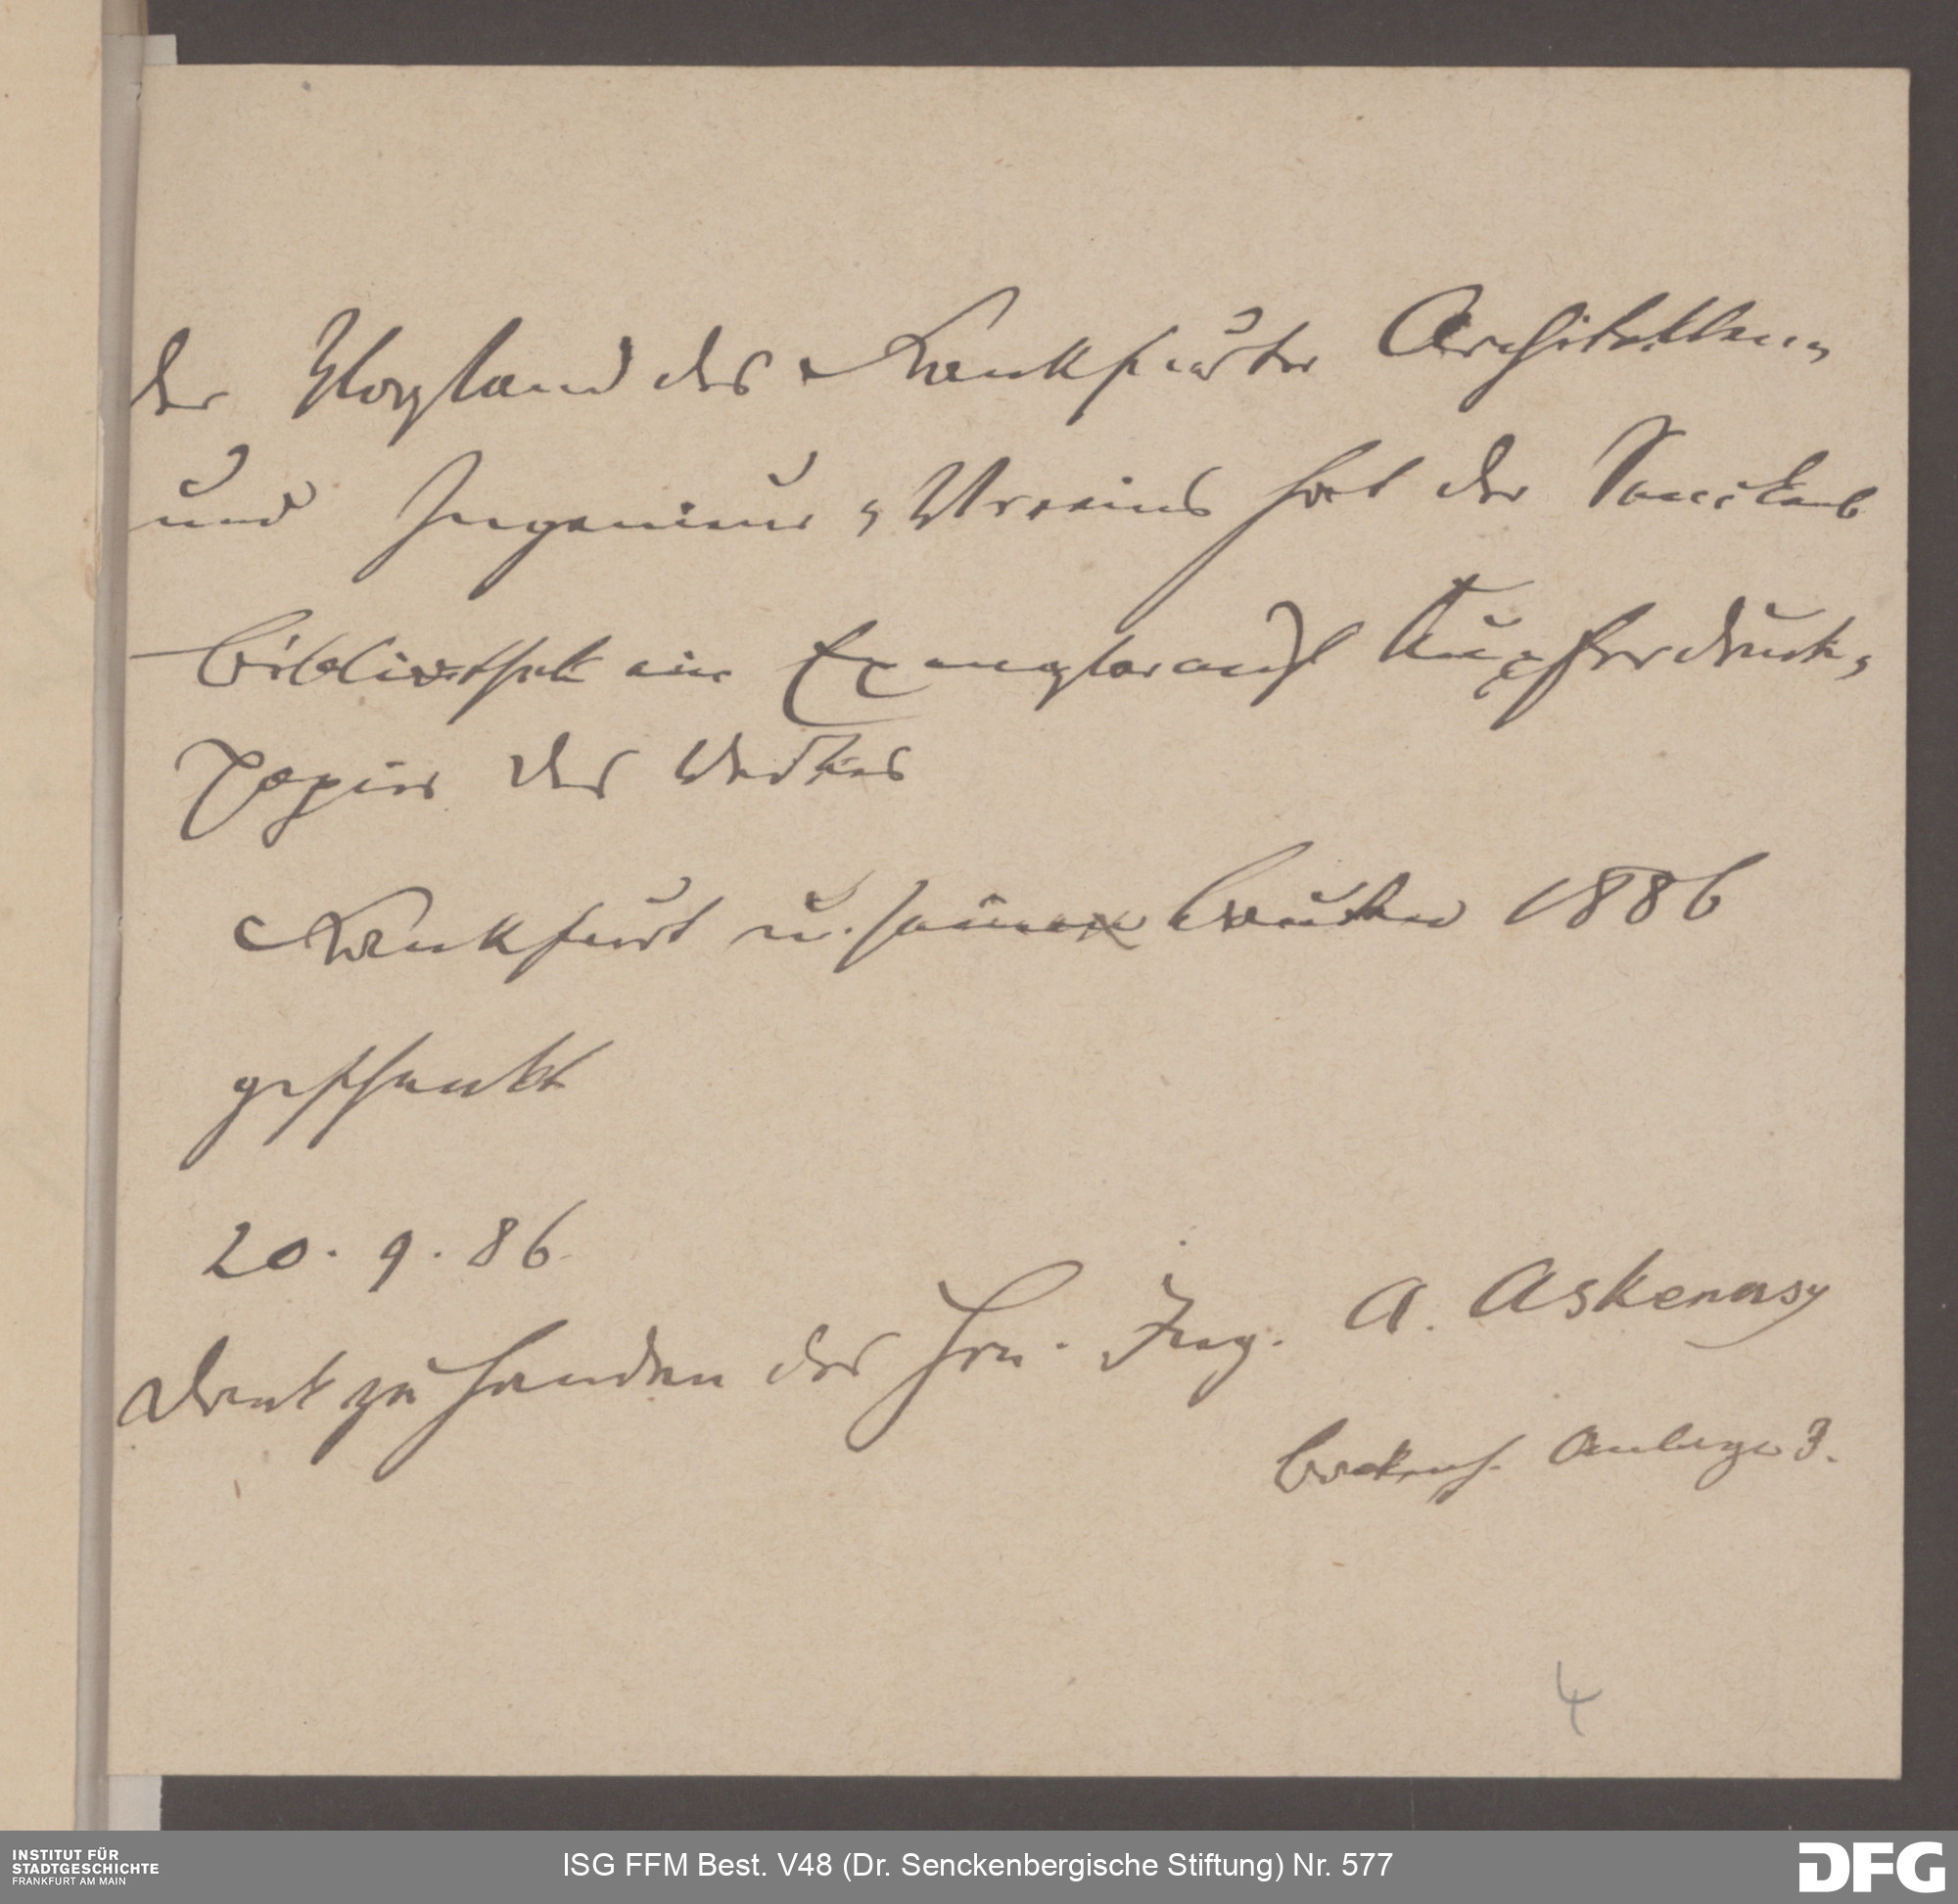 der Vorstand des Frankfurter Architekten-
und Ingenieur-Vereins hat der Senckenb
bibliothek ein Exemplar auf Kupferdruck-
papier des Werkes
Frankfurt u. seine Bauten 1886
geschenkt
20. 9. 86
Dank zu Handen des Hrn. Ing. A. Askenasy
Bockenh. Anlage 3.
4
INSTITUT FÜR
STADTGESCHICHTE
FRANKFURT AM MAIN
ISG FFM Best. V48 (Dr. Senckenbergische Stiftung) Nr. 577
DFG